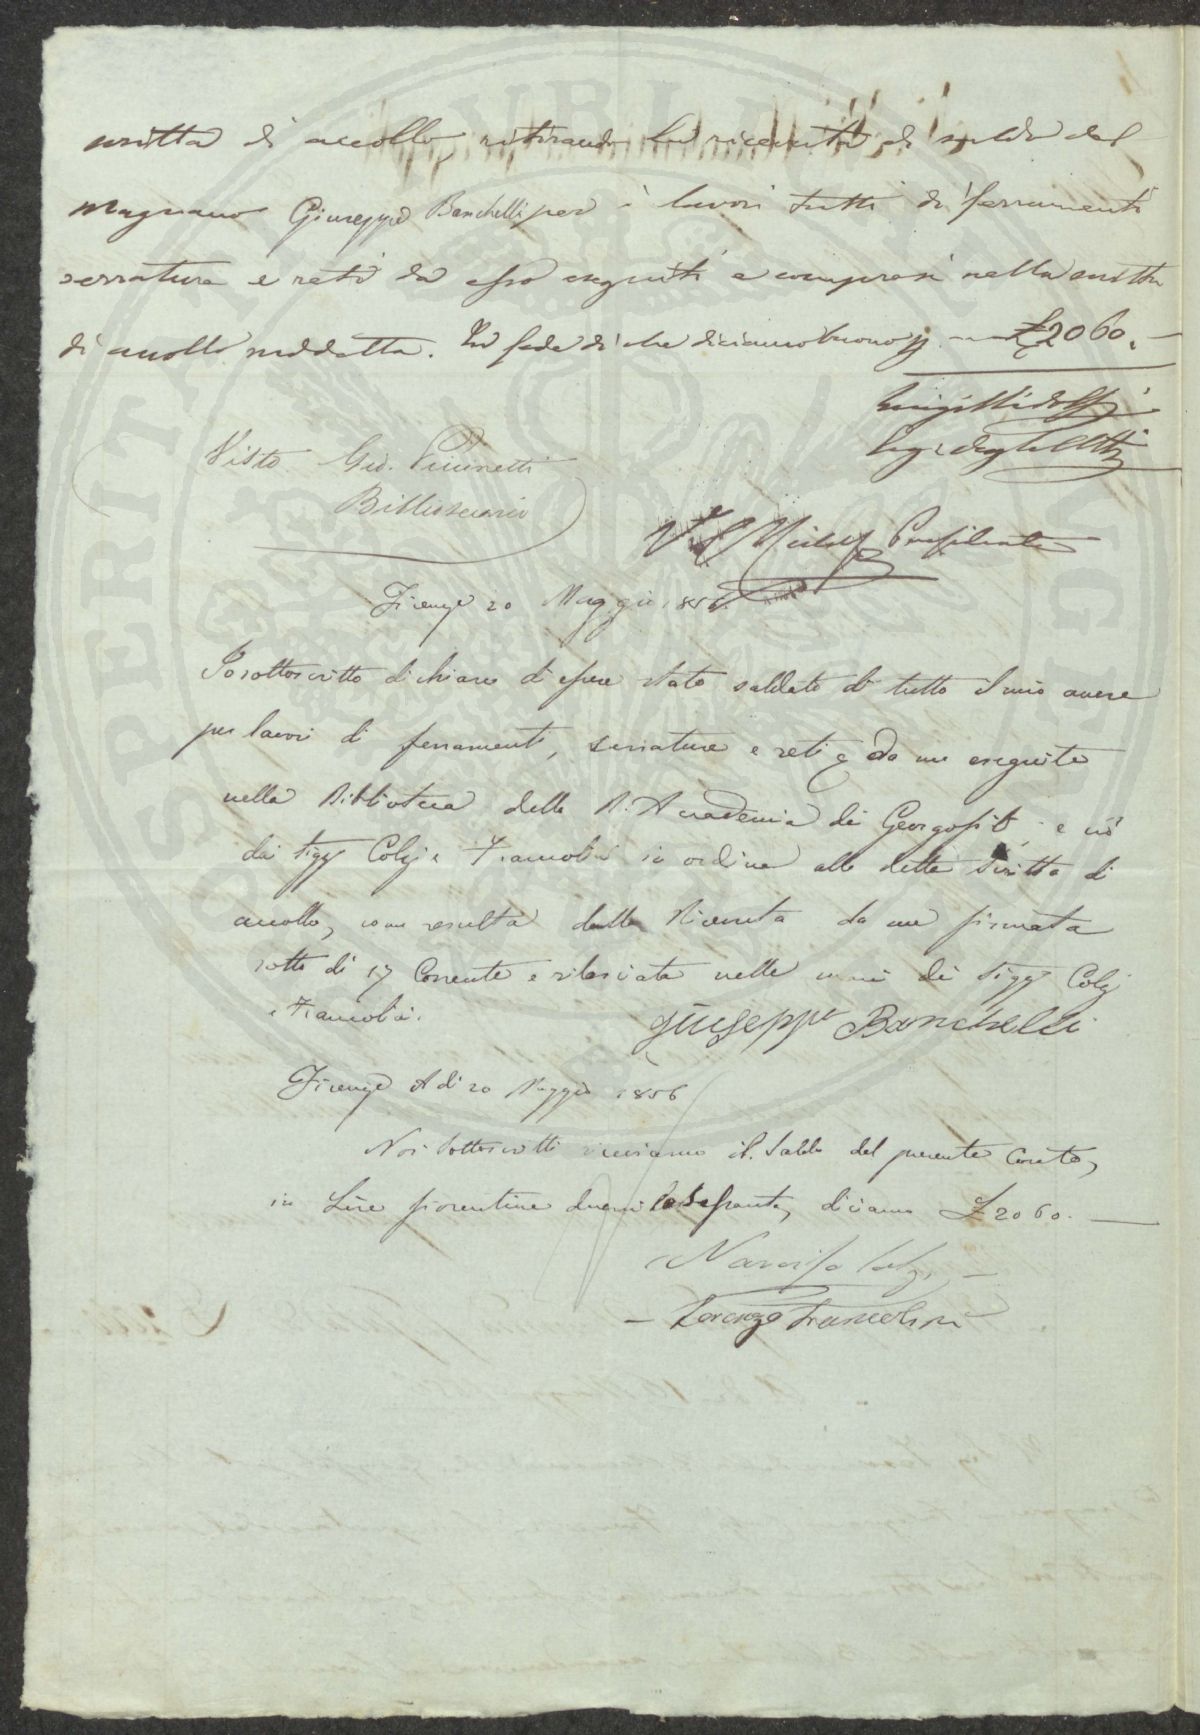 scritta di accollo, ritirando la ricevuta di saldo dal
magnano Giuseppe Banchelli per i lavori tutti di ferramenti
serrature e reti da esso eseguiti e compresi nella scritta
di accollo suddetta. In fede di che diciamo buono p £2060.
Luigi Ridolfi
Luigi degl'Albizzi
Visto Gio.
Bibliotecario
V. C. Ridolfi Presidente
Firenze 20 Maggio 1856.
Io sottoscritto dichiaro di essere stato saldato di tutto il mio avere
per lavori di ferramenti, serrature e reti da me eseguite
nella Biblioteca della R. Accademia dei Georgofili e ciò
dai Sigg Colzi e Francolini in ordine alla detta Scritta di
accollo, come resulta dalla Ricevuta da me firmata
sotto di 17 Corrente e rilasciata nelle mani dei Sigg Colzi
e Francolini.
Giuseppe Banchelli
Firenze A di 20 Maggio 1856
Noi Sottoscritti riceviamo il Saldo del presente Conto,
in Lire fiorentine duemilasessanta, diciamo £ 2060.
Narciso Colzi
Lorenzo Francolini
PERITATI PUBLICAE